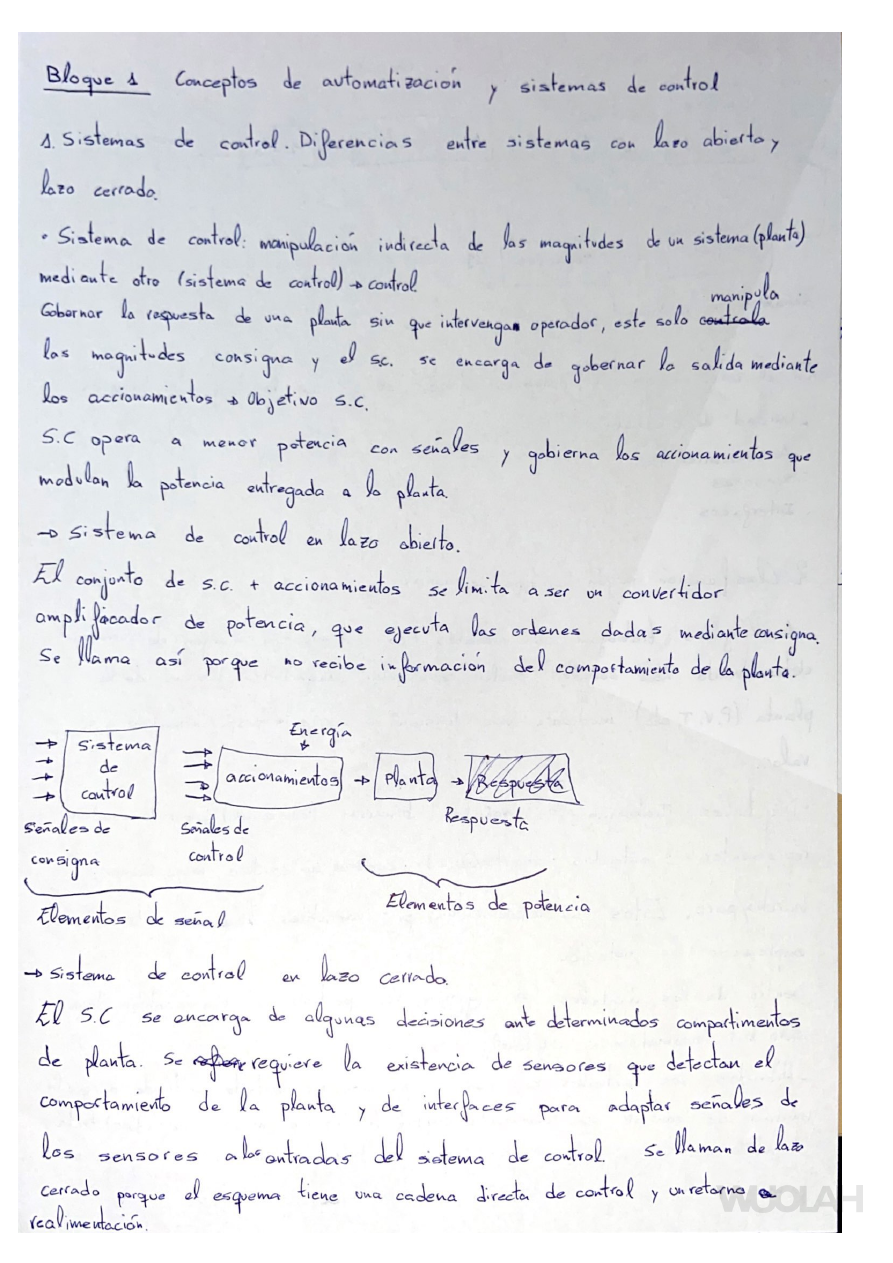 Bloque 1 Conceptos de automatización y sistemas de control
1. Sistemas de control. Diferencias entre sistemas con lazo abierto y
lazo cerrado.
· Sistema de control: manipulación indirecta de las magnitudes de un sistema (planta)
mediante otro (sistema de control) → control
manipula
Gobernar la respuesta de una planta sin que intervengan operador, este solo controla
las magnitudes consigna y el sc. se encarga de gobernar la salida mediante
los accionamientos → Objetivo S.C.
S.C opera a menor potencia con señales y gobierna los accionamientos que
modulan la potencia entregada a la planta.
→ Sistema de control en lazo abierto.
El conjunto de s.c. + accionamientos se limita a ser un convertidor
amplificador de potencia, que ejecuta las ordenes dadas mediante consigna.
Se llama así porque no recibe información del comportamiento de la planta.
Energía
Sistema de control
accionamientos → Planta → Respuesta
Respuesta
Señales de consigna
Señales de control
Elementos de señal
Elementos de potencia
→ Sistema de control en lazo cerrado.
El S.C se encarga de algunas decisiones ante determinados compartimentos
de planta. Se requiere la existencia de sensores que detectan el
comportamiento de la planta y de interfaces para adaptar señales de
los sensores a las entradas del sistema de control. Se llaman de lazo
cerrado porque el esquema tiene una cadena directa de control y un retorno
realimentación.
WUOLAH